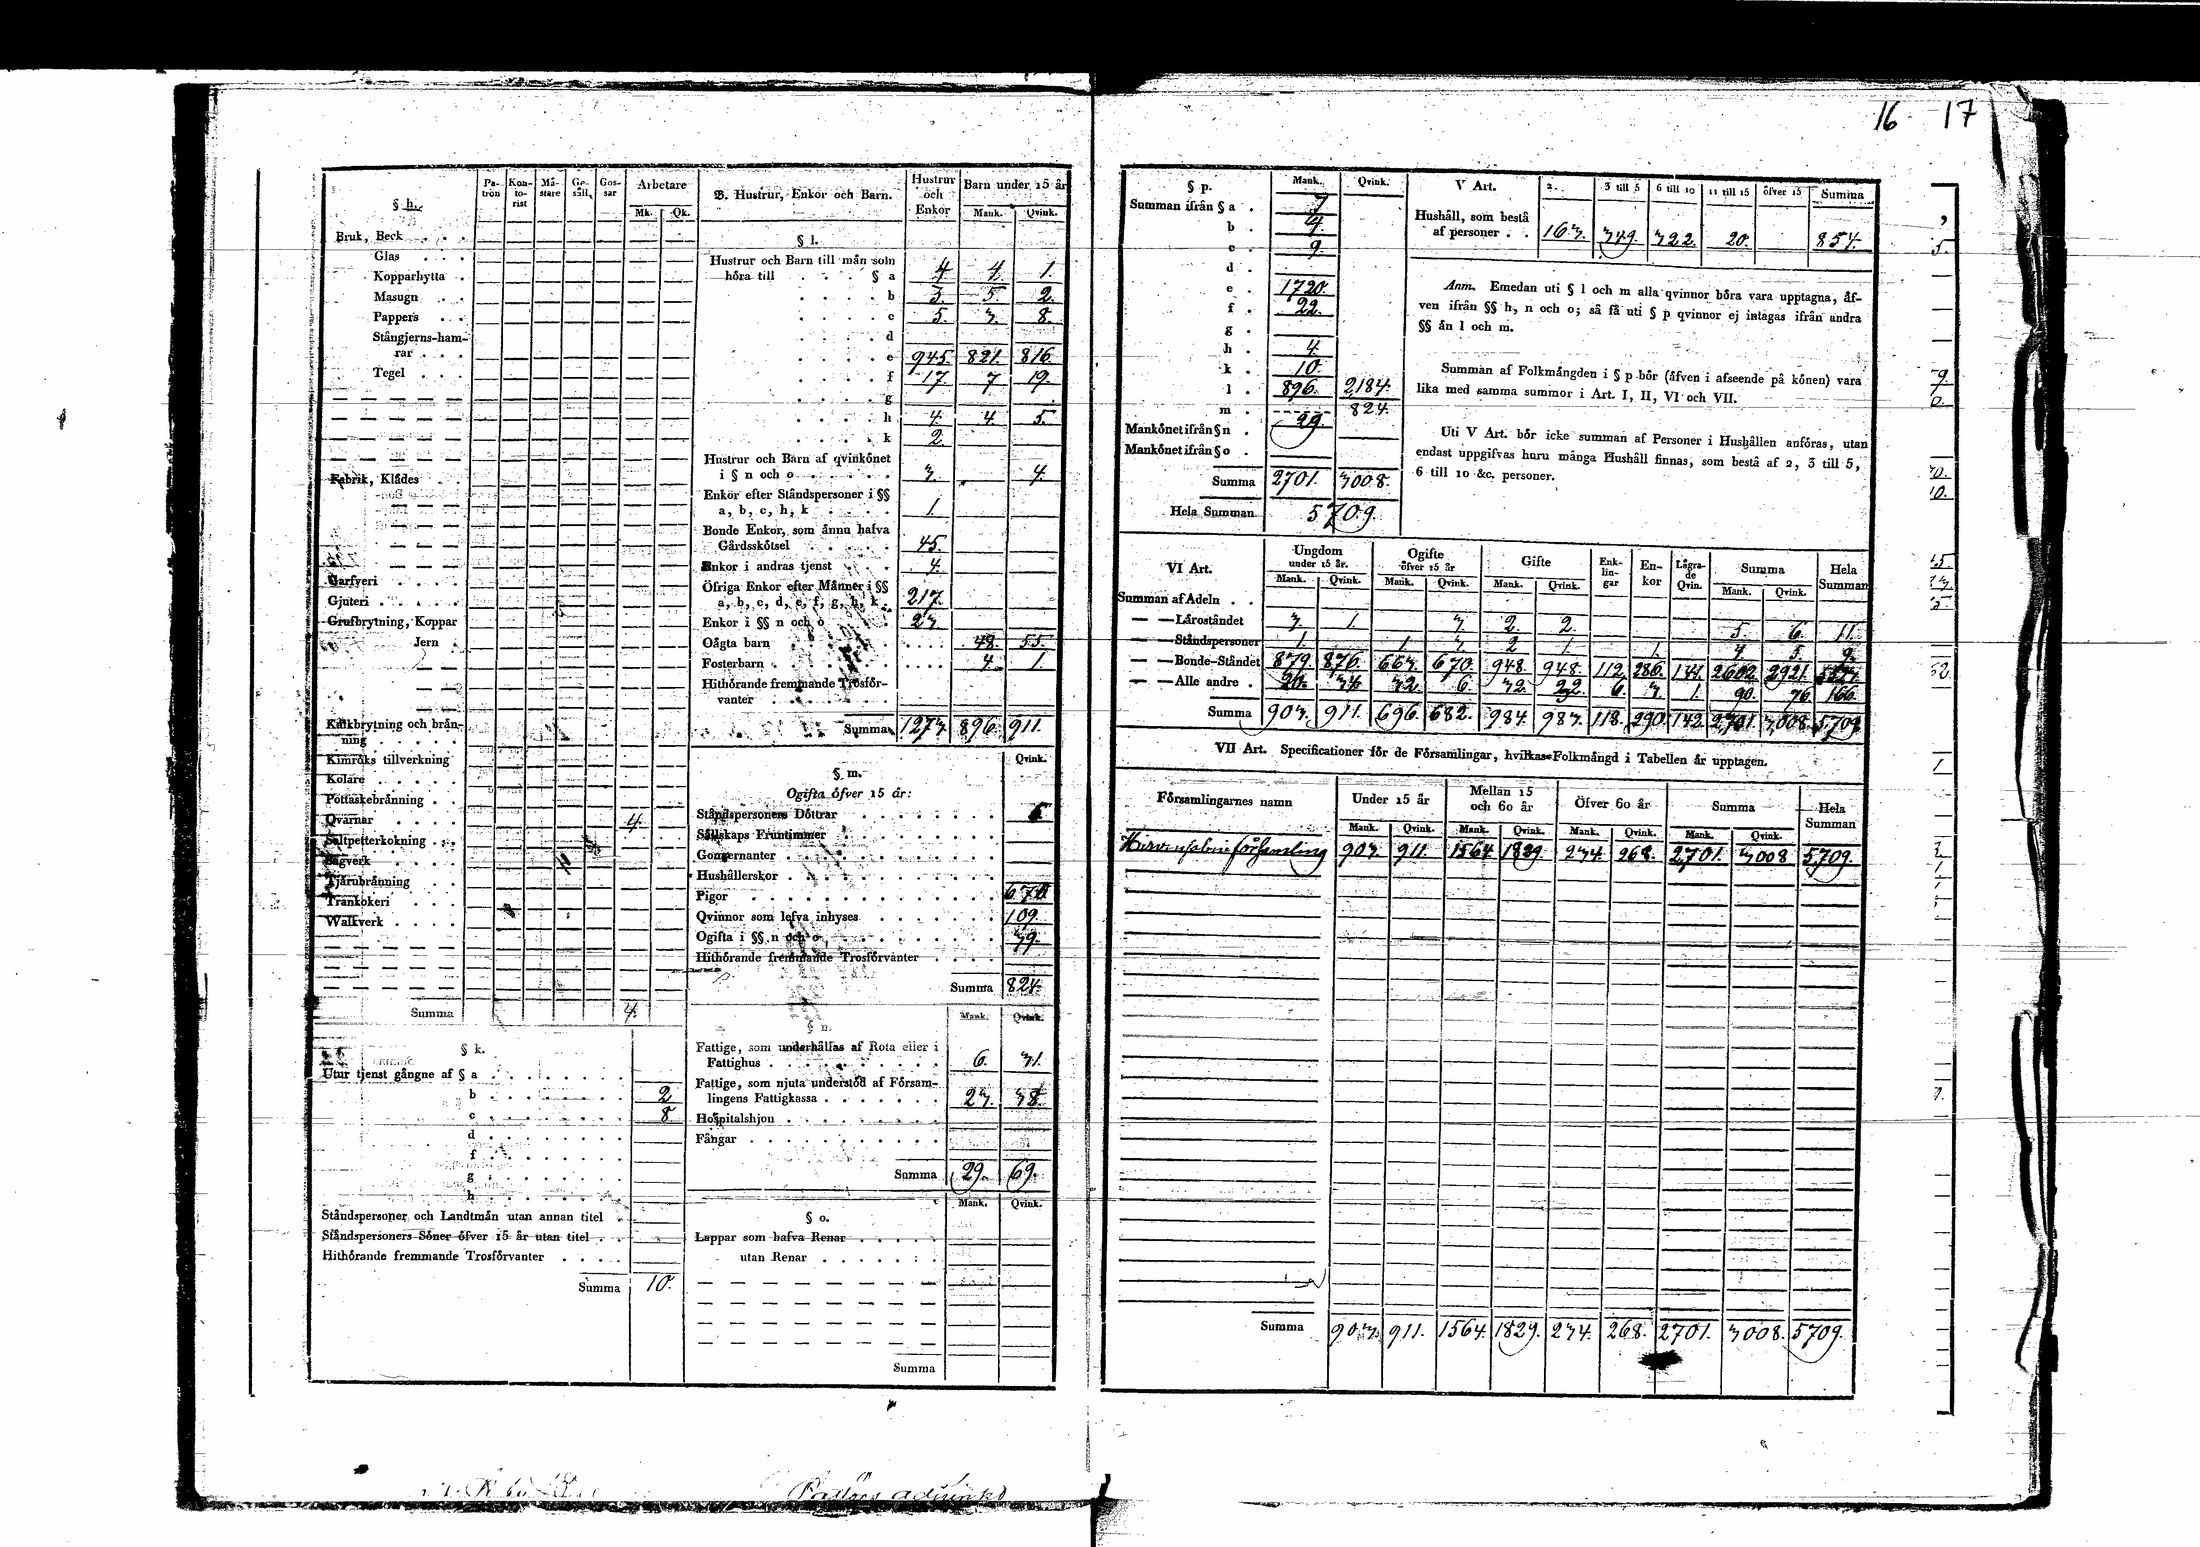 16 17
§ h. Patron Kontorist Mästare Gesäll Gossar Arbetare
Mk. Qk.
Bruk, Beck . . .
Glas . . .
Kopparhytta .
Masugn . .
Pappers . .
Stångjerns-ham-
rar . . .
Tegel . . .
Fabrik, Klädes . .
Garfveri . . . .
Gjuteri . . . . .
Grufbrytning, Koppar
Jern .
Kalkbrytning och brän-
ning . . . . .
Kimröks tillverkning
Kolare . . . . .
Pottaskebränning . .
Qvarnar . . . . 4.
Saltpetterkokning . . .
Sågverk . . . .
Tjärubränning . .
Trankokeri . . .
Walkverk . . . .
Summa 4.
§ k.
Utur tjenst gångne af § a . . . . . . .
b . . . . . . . 2
c . . . . . . . 8
d . . . . . . .
f . . . . . . .
g . . . . . . .
h . . . . . . .
Ståndspersoner och Landtmän utan annan titel .
Ståndspersoners Söner öfver 15 år utan titel . .
Hithörande fremmande Trosförvanter . . . .
Summa 10.
B. Hustrur, Enkor och Barn. Hustrur och Enkor Barn under 15 år
Mank. Qvink.
§ l.
Hustrur och Barn till män som
höra till . . . . § a 4 4. 1.
. . . . . b 3. 5. 2.
. . . . . c 5. 3. 8.
. . . . . d
. . . . . e 945. 821. 816.
. . . . . f 17. 7 19.
. . . . . g
. . . . . h 4. 4. 5.
. . . . . k 2.
Hustrur och Barn af qvinkönet
i § n och o . . . . . . 3. 4.
Enkor efter Ståndspersoner i §§
a, b, c, h, k . . . . 1.
Bonde Enkor, som ännu hafva
Gårdsskötsel . . . . . . 45.
Enkor i andras tjenst . . . 4.
Öfriga Enkor efter Männer i §§
a, b, c, d, e, f, g, h, k . 217.
Enkor i §§ n och o . . . . 23.
Oägta barn . . . . . . . 48. 55.
Fosterbarn . . . . . . . 4. 1.
Hithörande fremmande Trosför-
vanter . . . . . . .
Summa 1273. 896. 911.
§ m. Qvink.
Ogifta öfver 15 år:
Ståndspersoners Döttrar . . . . . . .
Sällskaps Fruntimmer . . . . . . . .
Gouvernanter . . . . . . . . . .
Hushållerskor . . . . . . . . . .
Pigor . . . . . . . . . . . . 670
Qvinnor som lefva inhyses . . . . . . 109.
Ogifta i §§ n och o . . . . . . . . 39.
Hithörande fremmande Trosförvanter . . . .
Summa 824.
§ n. Mank. Qvink.
Fattige, som underhållas af Rota eller i
Fattighus . . . . . . . . . 6. 31.
Fattige, som njuta understöd af Försam-
lingens Fattigkassa . . . . . . . 23. 38.
Hospitalshjon . . . . . . . .
Fångar . . . . . . . . . .
Summa 29. 69.
§ o. Mank. Qvink.
Lappar som hafva Renar . . . . .
utan Renar . . . . . .
Summa
§ p. Mank. Qvink.
Summan ifrån § a . 7
b . 4.
c . 9.
d .
e . 1720.
f . 22.
g .
h . 4.
k . 10.
l . 896. 2184.
m . 824.
Mankönet ifrån § n . 29.
Mankönet ifrån § o .
Summa 2701. 3008.
Hela Summan 5709.
V Art. 2. 3 till 5 6 till 10 11 till 15 öfver 15 Summa
Hushåll, som bestå
af personer . . 163. 349. 322. 20. 854.
Anm. Emedan uti § l och m alla qvinnor böra vara upptagna, äf-
ven ifrån §§ h, n och o; så få uti § p qvinnor ej intagas ifrån andra
§§ än l och m.
Summan af Folkmängden i § p bör (äfven i afseende på könen) vara
lika med samma summor i Art. I, II, VI och VII.
Uti V Art. bör icke summan af Personer i Hushållen anföras, utan
endast uppgifvas huru många Hushåll finnas, som bestå af 2, 3 till 5,
6 till 10 &c. personer.
VI Art. Ungdom under 15 år. Ogifte öfver 15 år Gifte Enklingar Enkor Lägrade Qvin. Summa Hela Summan
Mank. Qvink. Mank. Qvink. Mank. Qvink. Mank. Qvink.
Summan af Adeln . .
— — Läroståndet 3. 1. 3. 2. 2. 5. 6. 11.
— — Ståndspersoner 1. 1. 3. 2 1. 1. 4. 5. 9.
— — Bonde-Ståndet 879. 876. 663. 670. 948. 948. 112. 286. 141. 2602. 2921. 5523.
— — Alle andre . 20. 34. 32. 6. 32. 32. 6. 3. 1. 90. 76. 166.
Summa 903. 911. 696. 682. 984. 983. 118. 290. 142. 2701. 3008. 5709.
VII Art. Specificationer för de Församlingar, hvilkas Folkmängd i Tabellen är upptagen.
Församlingarnes namn Under 15 år Mellan 15 och 60 år Öfver 60 år Summa Hela Summan
Mank. Qvink. Mank. Qvink. Mank. Qvink. Mank. Qvink.
Hirvensalmi församling 903. 911. 1564. 1829. 234. 268. 2701. 3008 5709.
Summa 903. 911. 1564. 1829. 234. 268. 2701. 3008. 5709.